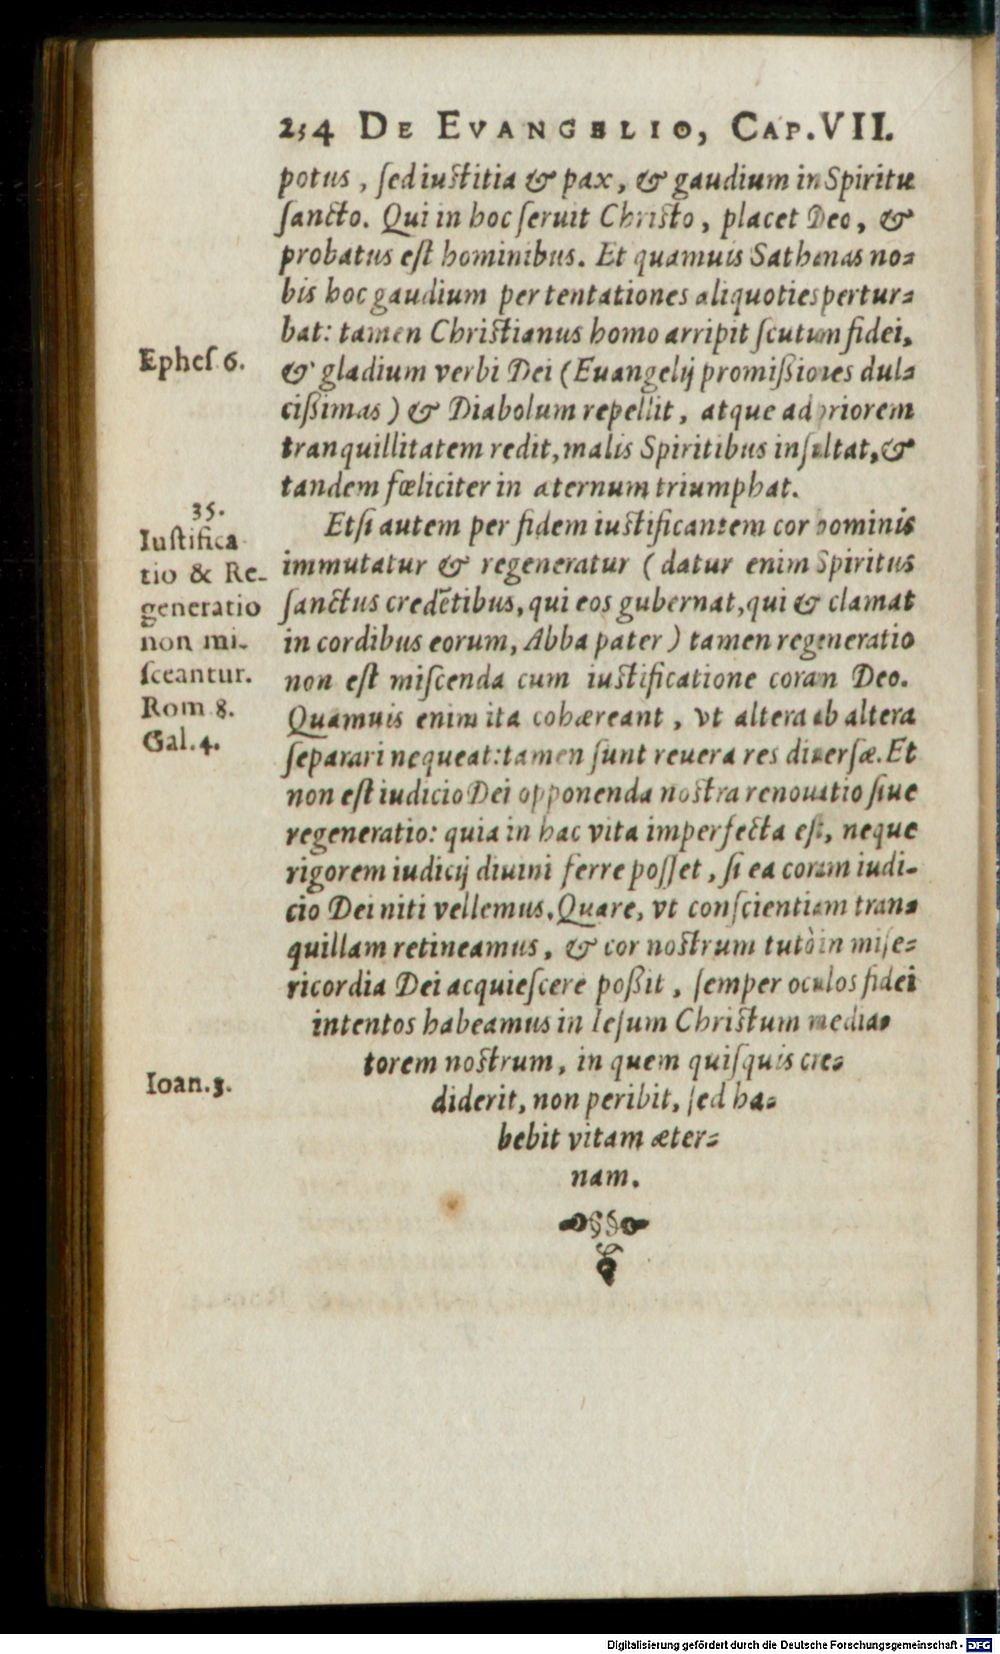 234 DE EVANGELIO, CAP. VII.
potus, ſed iuſtitia & pax, & gaudium in Spiritu
ſancto. Qui in hoc ſeruit Chriſto, placet Deo, &
probatus eſt hominibus. Et quamuis Sathanas no-
bis hoc gaudium per tentationes aliquoties pertur-
bat: tamen Chriſtianus homo arripit ſcutum fidei,
Epheſ 6.
& gladium verbi Dei (Euangelij promißiones dul-
cißimas) & Diabolum repellit, atque ad priorem
tranquillitatem redit, malis Spiritibus inſultat, &
tandem fœliciter in æternum triumphat.
35.
Iuſtifica
tio & Re-
generatio
non mi-
ſceantur.
Rom 8.
Gal. 4.
Etſi autem per fidem iuſtificantem cor hominis
immutatur & regeneratur (datur enim Spiritus
ſanctus credẽtibus, qui eos gubernat, qui & clamat
in cordibus eorum, Abba pater) tamen regeneratio
non eſt miſcenda cum iuſtificatione coram Deo.
Quamuis enim ita cohæreant, vt altera ab altera
ſeparari nequeat: tamen ſunt reuera res diuerſæ. Et
non eſt iudicio Dei opponenda noſtra renouatio ſiue
regeneratio: quia in hac vita imperfecta eſt, neque
rigorem iudicij diuini ferre poſſet, ſi ea coram iudi-
cio Dei niti vellemus. Quare, vt conſcientiam tran-
quillam retineamus, & cor noſtrum tutò in miſe-
ricordia Dei acquieſcere poßit, ſemper oculos fidei
intentos habeamus in Ieſum Chriſtum media-
torem noſtrum, in quem quiſquis cre-
Ioan. 3.
diderit, non peribit, ſed ha-
bebit vitam æter-
nam.
Digitalisierung gefördert durch die Deutsche Forschungsgemeinschaft - DFG